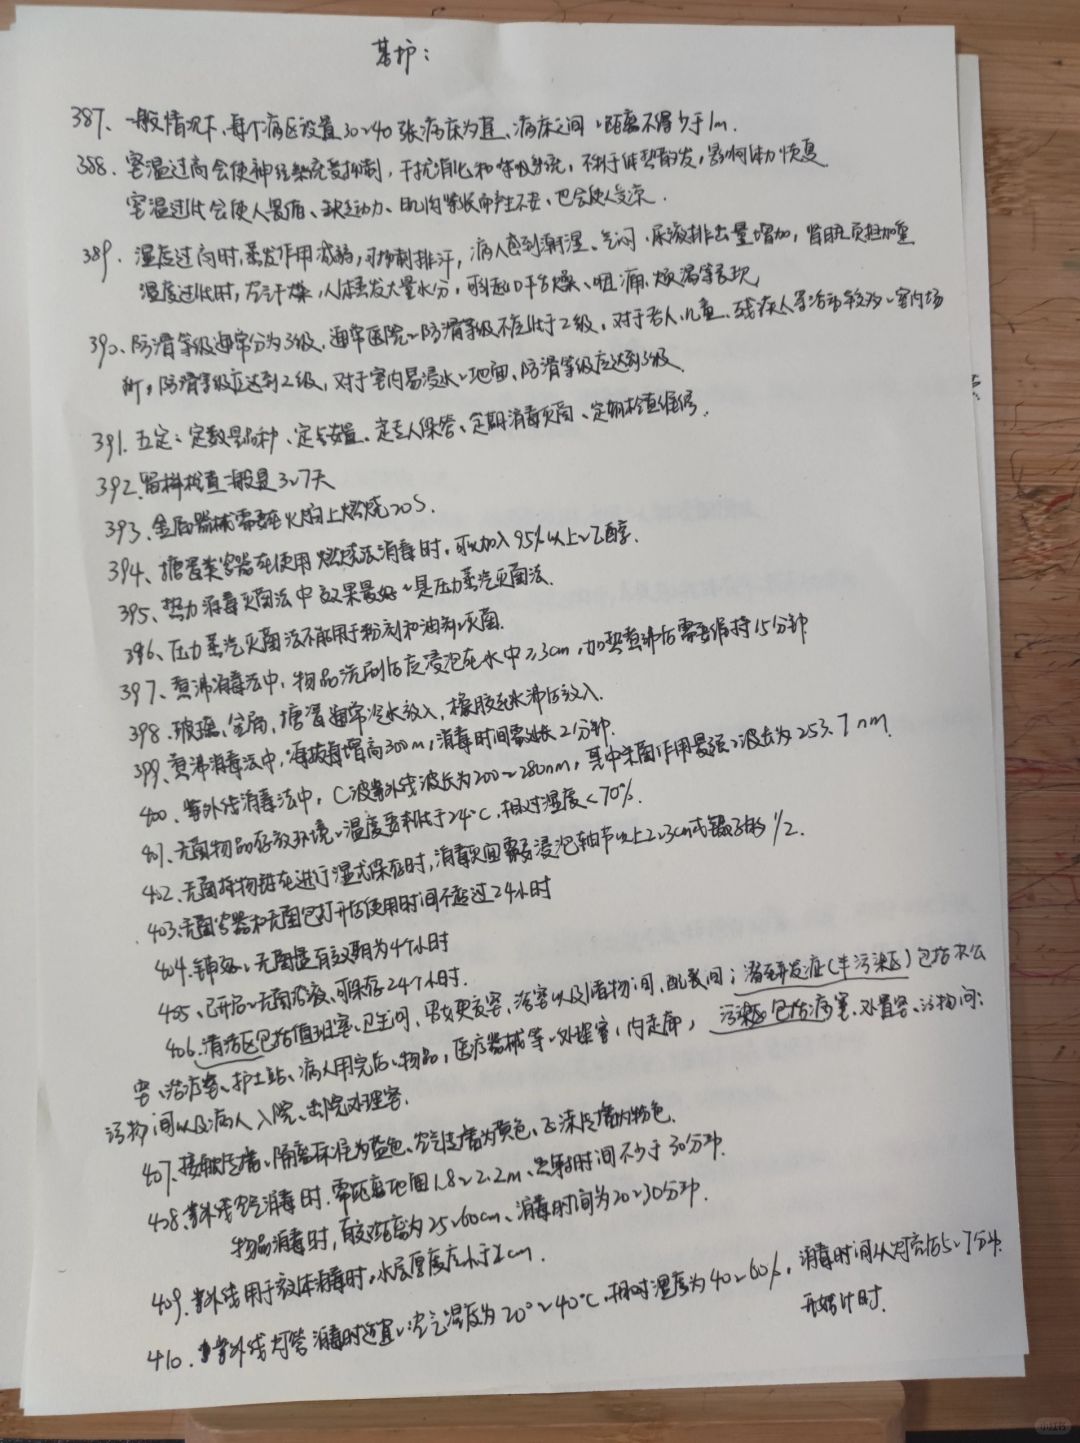 基护：
387、一般情况下,每个病区设置30~40张病床为宜、病床之间~距离不得少于1m.
388、室温过高会使神经系统受抑制，干扰消化和呼吸系统，不利于体热散发，影响体力恢复
室温过低会使人畏缩、缺乏动力、肌肉紧张而产生不安、也会使人受凉.
389、湿度过高时,蒸发作用减弱,可抑制排汗，病人感到潮湿、气闷、尿液排出量增加，肾脏负担加重
湿度过低时，空气干燥，人体蒸发大量水分，可引起口干舌燥、咽痛、烦渴等表现
390、防滑等级通常分为3级，通常医院~防滑等级不应低于2级，对于老人、儿童、残疾人等活动较多~室内场
所，防滑等级应达到2级，对于室内易浸水~地面、防滑等级应达到3级
391、五定：定数量品种、定点安置、定专人保管、定期消毒灭菌、定期检查维修.
392、留样检查一般是3~7天
393、金属器械需要在火焰上燃烧20S.
394、搪瓷类容器在使用燃烧法消毒时，可以加入95%以上~乙醇.
395、热力消毒灭菌法中效果最好~是压力蒸汽灭菌法.
396、压力蒸汽灭菌法不能用于粉剂和油剂~灭菌.
397、煮沸消毒法中，物品洗刷后应浸泡在水中≥3cm，加热煮沸后需要维持15分钟
398、玻璃、金属、搪瓷通常冷水放入，橡胶在水沸后放入.
399、煮沸消毒法中，海拔每增高300m，消毒时间需延长2分钟.
400、紫外线消毒法中，C波紫外线波长为200~280nm，其中杀菌作用最强~波长为253.7nm.
401、无菌物品存放环境~温度要求低于24℃,相对湿度<70%.
402、无菌持物钳在进行湿式保存时,消毒液面需要浸泡轴节以上2~3cm或镊子的1/2.
403、无菌容器和无菌包打开后使用时间不超过24小时
404、铺好~无菌盘有效期为4个小时
405、已开启~无菌溶液、可保存24个小时.
406、清洁区包括值班室、卫生间、男女更衣室、浴室以及储物间、配餐间；潜在污染区(半污染区)包括办公
室、治疗室、护士站、病人用完后~物品，医疗器械等~处理室；内走廊，污染区包括病室、处置室、污物间；
污物间以及病人入院、出院处理室.
407、接触传播~隔离标准为蓝色、空气传播为黄色、飞沫传播为粉色.
408、紫外线空气消毒时.需距离地面1.8~2.2m、照射时间不少于30分钟.
物品消毒时，有效距离为25~60cm、消毒时间为20~30分钟.
409、紫外线用于液体消毒时，水层厚度应小于2cm.
410、紫外线灯管消毒时适宜~空气温度为20°~40℃,相对湿度为40~60%，消毒时间从灯亮后5~7分钟
开始计时.